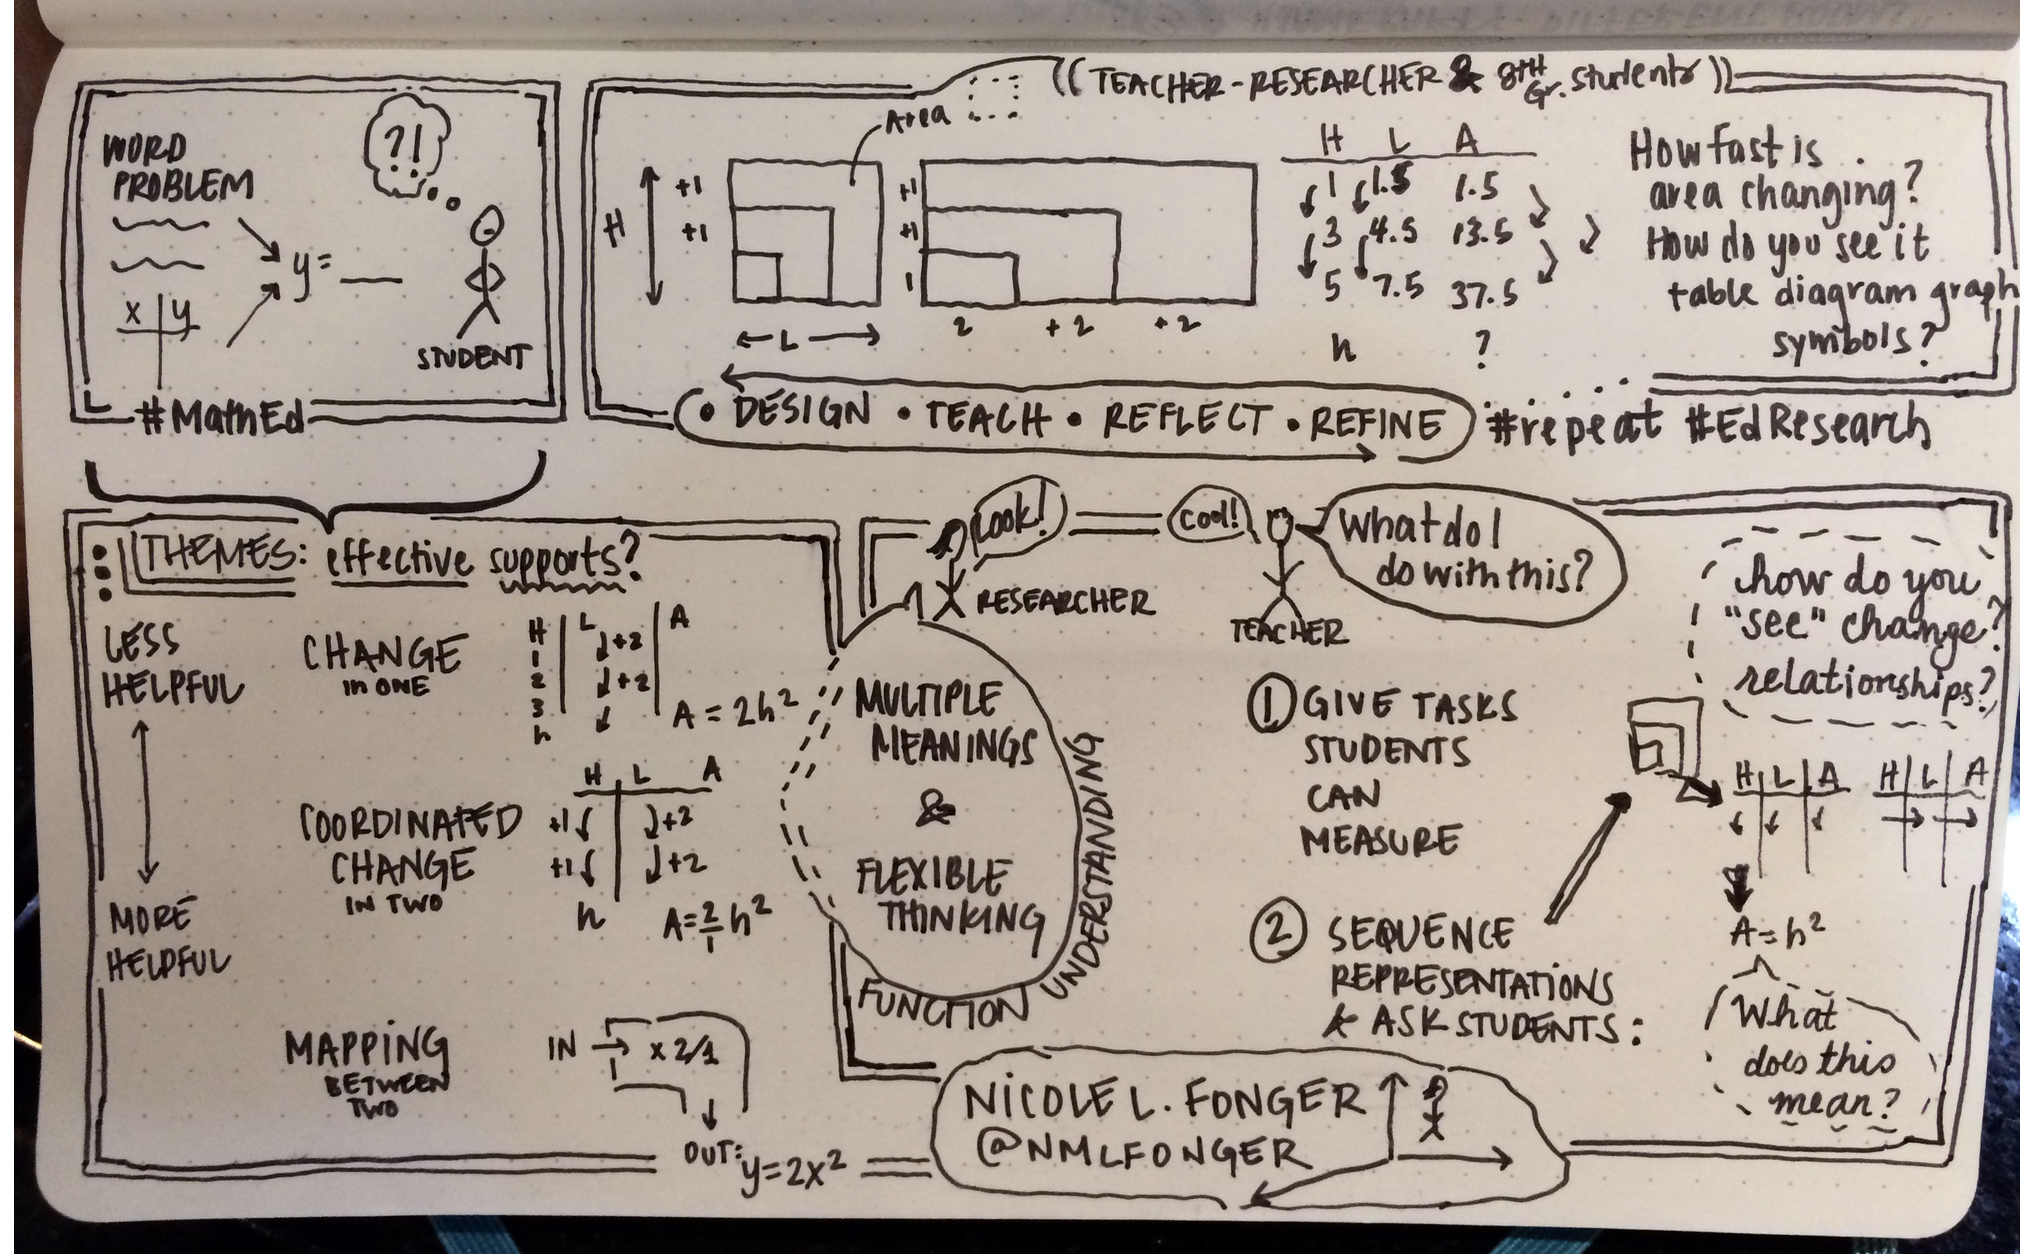 WORD
PROBLEM
?!
y = __
x y
STUDENT
#MathEd
((TEACHER-RESEARCHER & 8TH Gr. students))
Area
H
+1
+1
L
+1
+1
1
2 +2 +2
H L A
1 1.5 1.5
3 4.5 13.5
5 7.5 37.5
h ?
How fast is
area changing?
How do you see it
table diagram graph
symbols?
• DESIGN • TEACH • REFLECT • REFINE
#repeat #EdResearch
THEMES: effective supports?
LESS
HELPFUL
MORE
HELPFUL
CHANGE
in ONE
H L A
1 +2
2 +2
3
h
A = 2h²
COORDINATED
CHANGE
IN TWO
H L A
+1 +2
+1 +2
h A = 2/1 h²
MAPPING
BETWEEN
TWO
IN → x 2/1
OUT: y=2x²
MULTIPLE
MEANINGS
&
FLEXIBLE
THINKING
FUNCTION UNDERSTANDING
Look!
RESEARCHER
Cool!
TEACHER
What do I
do with this?
① GIVE TASKS
STUDENTS
CAN
MEASURE
② SEQUENCE
REPRESENTATIONS
& ASK STUDENTS:
how do you
"see" change?
relationships?
H L A
H L A
A = h²
What
does this
mean?
NICOLE L. FONGER
@NMLFONGER